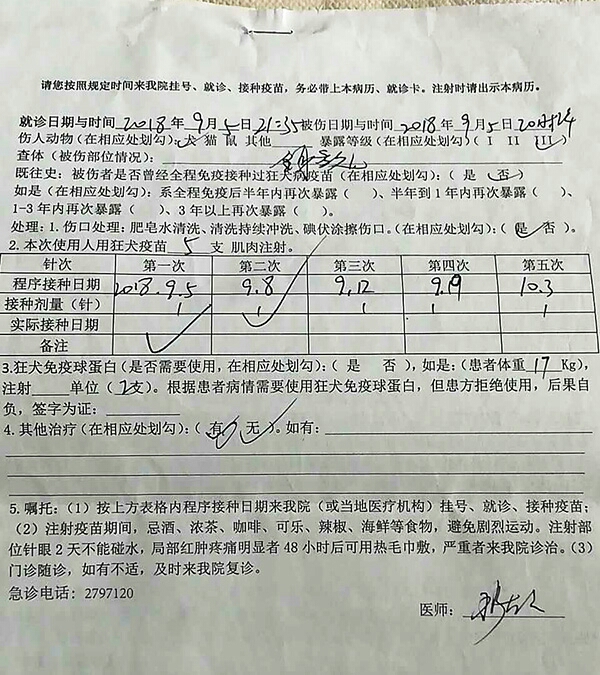 请您按照规定时间来我院挂号、就诊、接种疫苗，务必带上本病历、就诊卡。注射时请出示本病历。
就诊日期与时间 2018 年 9 月 5 日 21:35 被伤日期与时间 2018 年 9 月 5 日 20时
伤人动物（在相应处划勾）：犬 猫 鼠 其他 暴露等级（在相应处划勾）（I II III）
查体（被伤部位情况）：
既往史：被伤者是否曾经全程免疫接种过狂犬病疫苗（在相应处划勾）：（是 否）。
如是（在相应处划勾）：系全程免疫后半年内再次暴露（ ）、半年到 1 年内再次暴露（ ）、
1-3 年内再次暴露（ ）、3 年以上再次暴露（ ）。
处理：1. 伤口处理：肥皂水清洗、清洗持续冲洗、碘伏涂擦伤口。（在相应处划勾）：（是 否）。
2. 本次使用人用狂犬疫苗 5 支 肌肉注射。
针次 第一次 第二次 第三次 第四次 第五次
程序接种日期 2018.9.5 9.8 9.12 9.19 10.3
接种剂量（针） 1 1 1 1 1
实际接种日期
备注
3.狂犬免疫球蛋白（是否需要使用，在相应处划勾）：（是 否），如是：（患者体重 17 Kg），
注射 单位（2支）。根据患者病情需要使用狂犬免疫球蛋白，但患方拒绝使用，后果自
负，签字为证：
4. 其他治疗（在相应处划勾）：（有 无）。如有：
5. 嘱托：（1）按上方表格内程序接种日期来我院（或当地医疗机构）挂号、就诊、接种疫苗；
（2）注射疫苗期间，忌酒、浓茶、咖啡、可乐、辣椒、海鲜等食物，避免剧烈运动。注射部
位针眼 2 天不能碰水，局部红肿疼痛明显者 48 小时后可用热毛巾敷，严重者来我院诊治。（3）
门诊随诊，如有不适，及时来我院复诊。
急诊电话：2797120
医师：